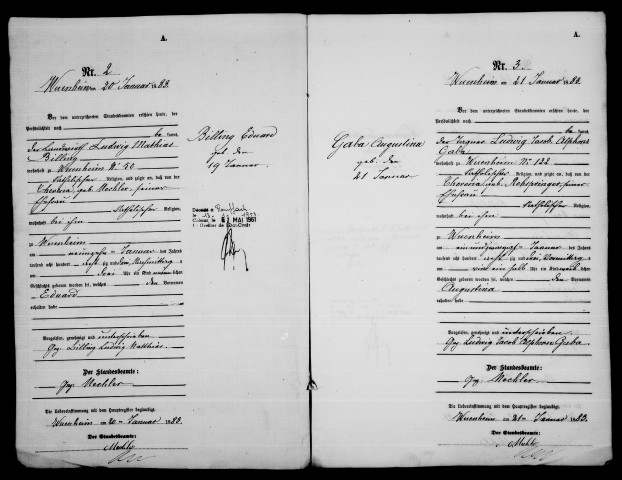 A.
Nr. 2
Wuenheim am 20 Januar 1883.
Vor dem unterzeichneten Standesbeamten erschien heute, der
Persönlichkeit nach be kannt,
der Ludwig Mathias
Billing
wohnhaft zu Wuenheim N° 50
katholischer Religion, und zeigte an, daß von der
Theresia, geb. Mechler, seiner
Ehefrau
katholischer Religion,
wohnhaft bei ihm
zu Wuenheim
am neunzehnten Januar des Jahres
tausend acht hundert achtzig und drei, Nachmittags
um drei Uhr ein Kind männlichen
Geschlechts geboren worden sei, welches den Vornamen
Eduard
erhalten habe
Vorgelesen, genehmigt und unterschrieben
Gez. Billing Ludwig Matthias.
Der Standesbeamte:
Gez. Mechler
Die Uebereinstimmung mit dem Hauptregister beglaubigt.
Wuenheim am 20ten Januar 1883.
Der Standesbeamte:
Mechler
Billing Eduard
geb. den
19 Januar
Décédé à Rouffach
le
Colmar le MAI 1961
A.
Nr. 3.
Wuenheim am 21 Januar 1883.
Vor dem unterzeichneten Standesbeamten erschien heute, der
Persönlichkeit nach be kannt,
der Ludwig Jacob Alphons
Gaba
wohnhaft zu Wuenheim N° 122
katholischer Religion, und zeigte an, daß von der
Theresia, geb. seiner
Ehefrau
katholischer Religion,
wohnhaft bei ihm
zu Wuenheim
am einundzwanzigsten Januar des Jahres
tausend acht hundert achtzig und drei, Vormittags
um ein halb Uhr ein Kind weiblichen
Geschlechts geboren worden sei, welches den Vornamen
Augustina
erhalten habe
Vorgelesen, genehmigt und unterschrieben
Gez. Ludwig Jacob Alphons Gaba
Der Standesbeamte:
Gez. Mechler
Die Uebereinstimmung mit dem Hauptregister beglaubigt.
Wuenheim am 21ten Januar 1883.
Der Standesbeamte:
Mechler
Gaba Augustina
geb. den
21 Januar